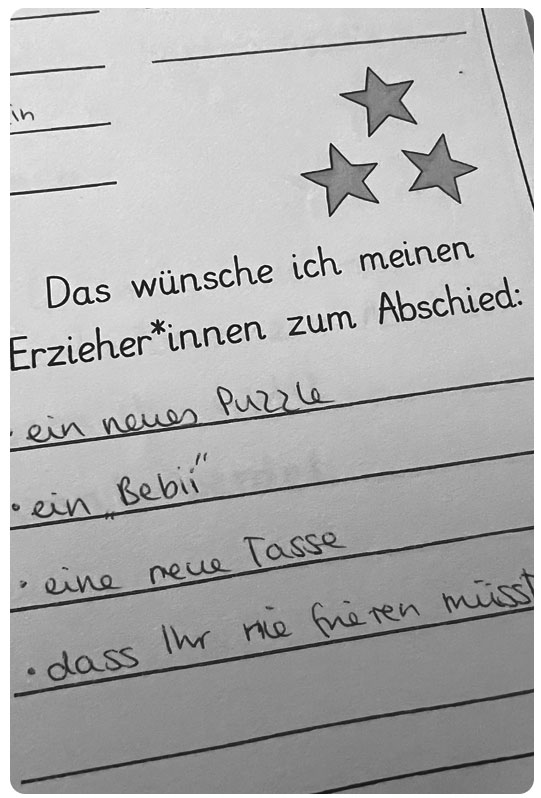 in
Das wünsche ich meinen
Erzieher*innen zum Abschied:
· ein neues Puzzle
· ein „Bebii"
· eine neue Tasse
· dass Ihr nie frieren müsst